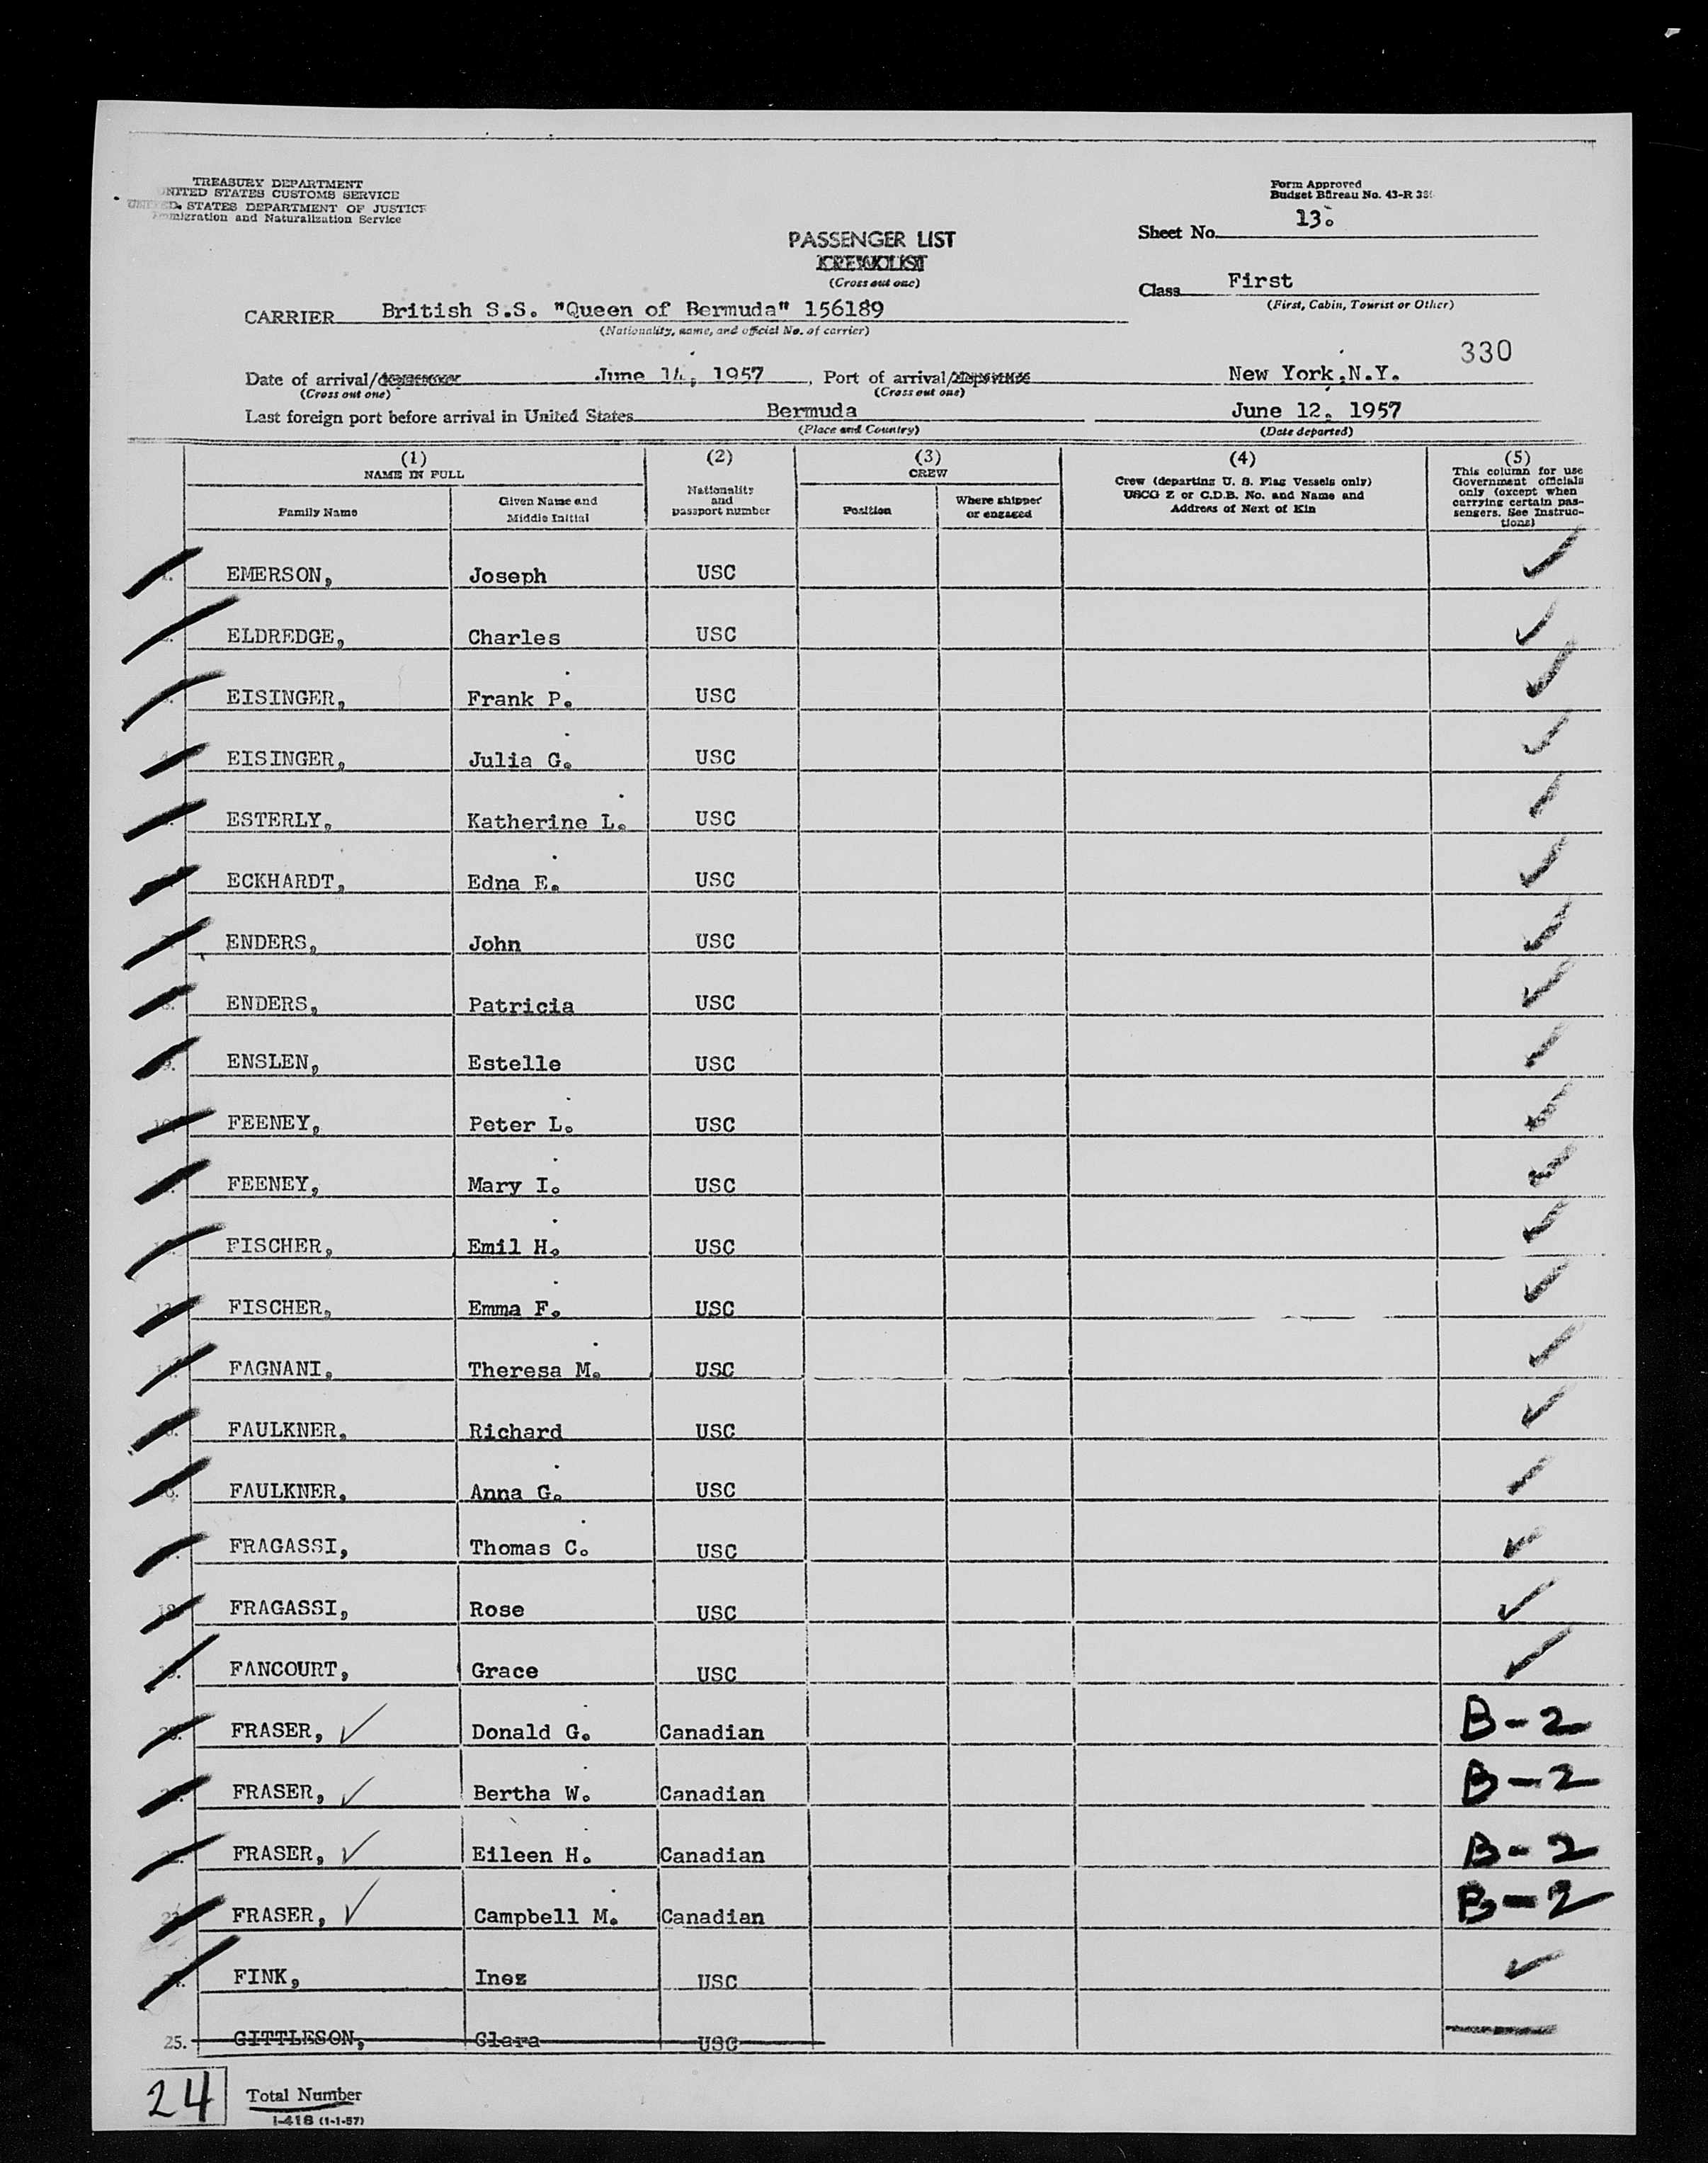 TREASURY DEPARTMENT
UNITED STATES CUSTOMS SERVICE
UNITED STATES DEPARTMENT OF JUSTICE
Immigration and Naturalization Service
Form Approved
Budget Bureau No. 43-R
Sheet No. 13.
PASSENGER LIST
CREW LIST
(Cross out one)
Class First
(First, Cabin, Tourist or Other)
CARRIER British S.S. "Queen of Bermuda" 156189
(Nationality, name, and official No. of carrier)
330
Date of arrival/departure June 14, 1957, Port of arrival/departure New York, N.Y.
(Cross out one) (Cross out one)
Last foreign port before arrival in United States Bermuda June 12, 1957
(Place and Country) (Date departed)
(1) (2) (3) (4) (5)
NAME IN FULL
Family Name
Given Name and
Middle Initial
Nationality
and
passport number
CREW
Position
Where shipped
or engaged
Crew (departing U. S. Flag Vessels only)
USCG Z or C.D.B. No. and Name and
Address of Next of Kin
This column for use
Government officials
only (except when
carrying certain pas-
sengers. See Instruc-
tions)
EMERSON, Joseph USC
ELDREDGE, Charles USC
EISINGER, Frank P. USC
EISINGER, Julia G. USC
ESTERLY, Katherine L. USC
ECKHARDT, Edna E. USC
ENDERS, John USC
ENDERS, Patricia USC
ENSLEN, Estelle USC
FEENEY, Peter L. USC
FEENEY, Mary I. USC
FISCHER, Emil H. USC
FISCHER, Emma F. USC
FAGNANI, Theresa M. USC
FAULKNER, Richard USC
FAULKNER, Anna G. USC
FRAGASSI, Thomas C. USC
FRAGASSI, Rose USC
FANCOURT, Grace USC
FRASER, Donald G. Canadian B-2
FRASER, Bertha W. Canadian B-2
FRASER, Eileen H. Canadian B-2
FRASER, Campbell M. Canadian B-2
FINK, Inez USC
25. GITTLESON, Clara USC
24 Total Number
I-418 (1-1-57)